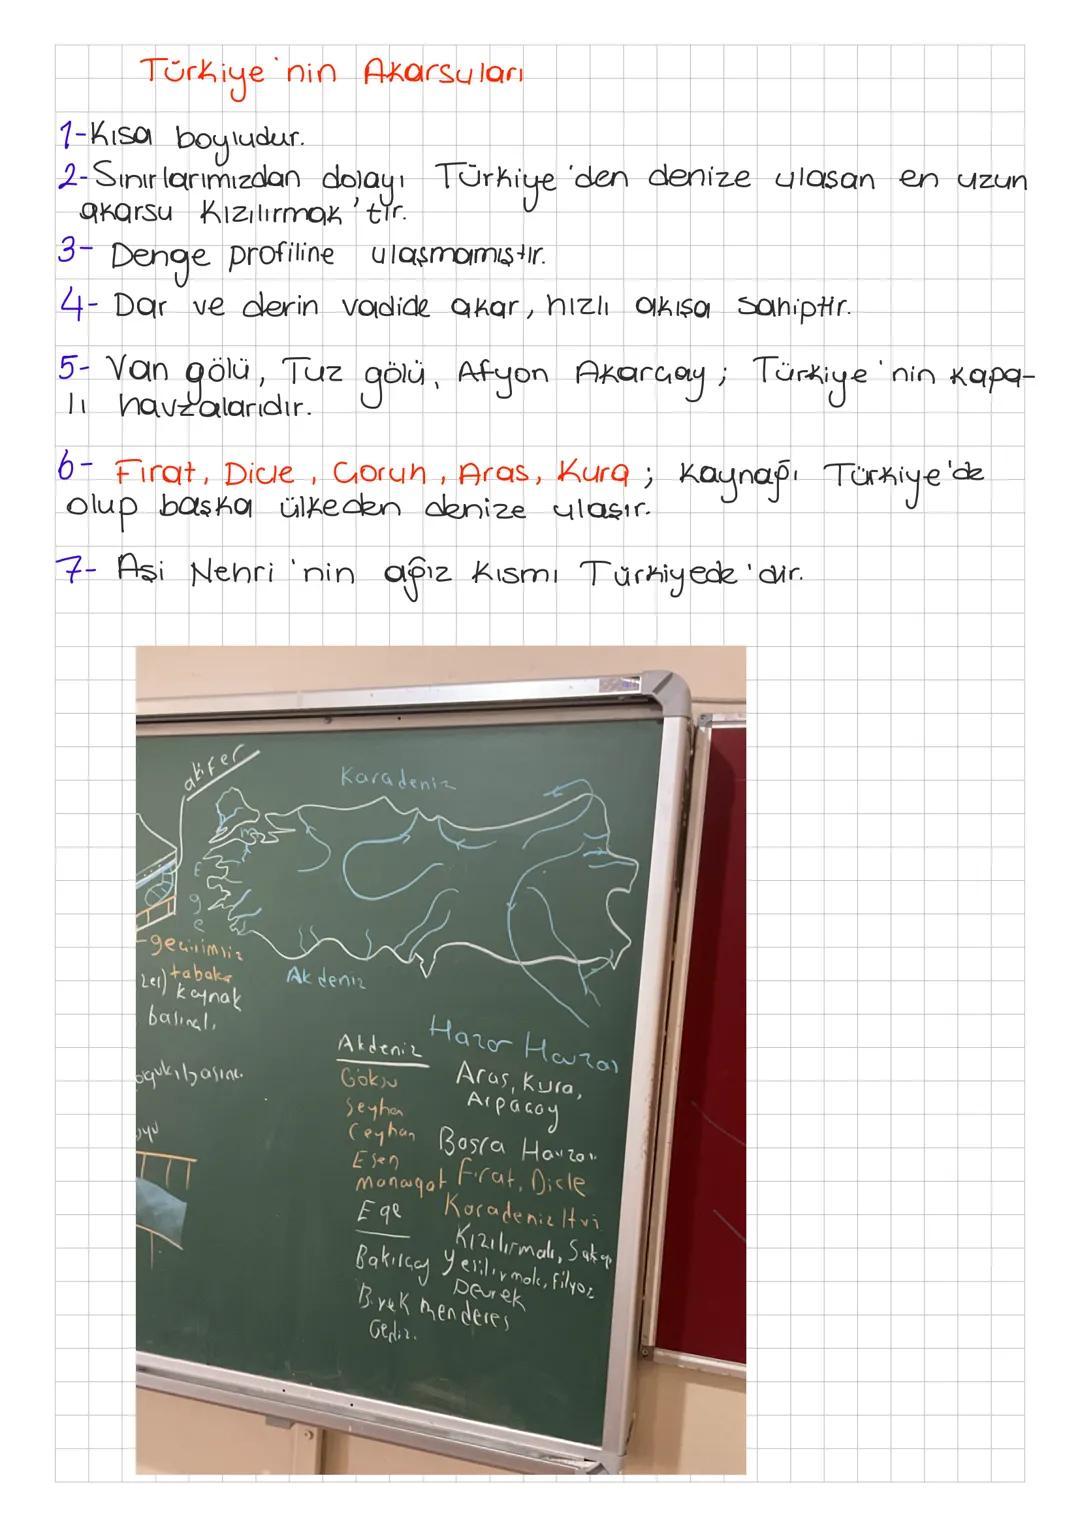 Türkiye'nin Akarsuları
1-Kısa boyludur.
2-Sınırlarımızdan dolayı Türkiye'den denize ulasan en uzun
akarsu Kızılırmak'tır.
3- Denge profiline ulaşmamıştır.
4- Dar ve derin vadide akar, hızlı akışa sahiptir.
5- Van gölü, Tuz gölü, Afyon Akarçay; Türkiye'nin kapa-
lı havzalarıdır.
6- Fırat, Dicle, Çoruh, Aras, Kura; kaynağı Türkiye'de
olup başka ülkeden denize ulaşır.
7- Aşi Nehri'nin ağız kısmı Türkiyede'dir.
akifer
Karadeniz
Ege
geçirimsiz
tabaka
kaynak
Akdeniz
Akdeniz
Göksu
Seyhan
Ceyhan
Esen
Manavgat
Ege
Bakırçay
B.yük menderes
Gediz.
Hazar Havzası
Aras, Kura,
Arpaçay
Basra Havzası
Fırat, Dicle
Karadeniz
Kızılırmak,
Yeşilırmak, Filyos
Devrek